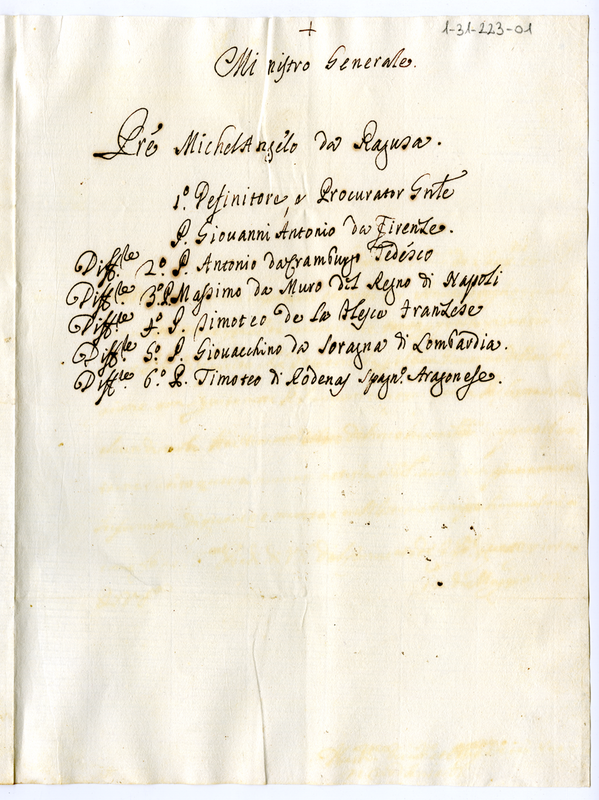 +
1-31-223-01
Ministro Generale.
Pre MichelAngelo da Ragusa.
1.º Definitore, e Procurator Gnle
P. Giovanni Antonio da Firenze.
Diffle 2.º P. Antonio da Tedesco
Diffle 3.º P. Massimo da Muro del Regno di Napoli
Diffle 4.º P. Timoteo de la Franzese
Diffle 5.º P. Giovacchino da Soragna di Lombardia.
Diffle 6.º P. Timoteo di Rodenas Spagn.º Aragonese.